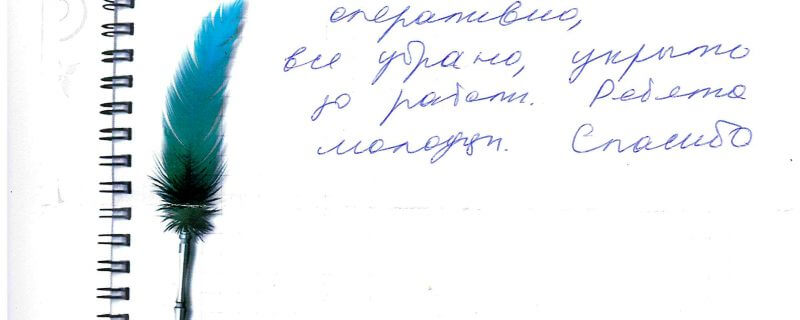 оперативно,
все убрано, укрыто
до работы. Ребята
молодцы. Спасибо